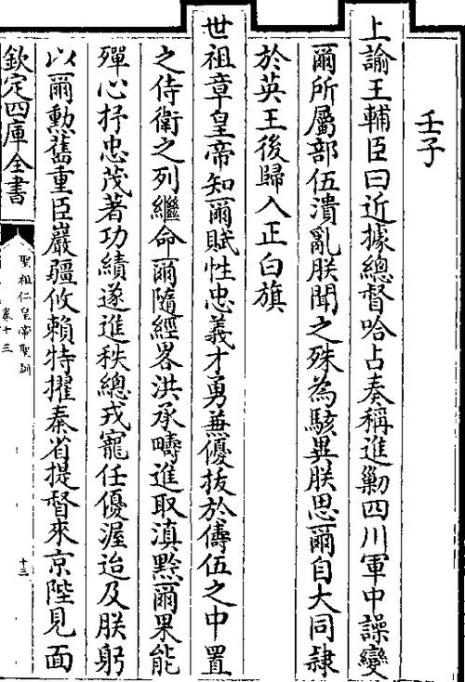 壬子
上諭王輔臣曰近據總督哈占奏稱進勦四川軍中譟變
爾所屬部伍潰亂朕聞之殊為駭異朕思爾自大同隷
於英王後歸入正白旗
世祖章皇帝知爾賦性忠義才勇兼優拔於儔伍之中置
之侍衛之列繼命爾隨經畧洪承疇進取滇黔爾果能
殫心抒忠茂著功績遂進秩總戎寵任優渥迨及朕躬
以爾勲舊重臣巖疆攸賴特擢秦省提督來京陛見面
欽定四庫全書
聖祖仁皇帝聖訓
卷十三
十三